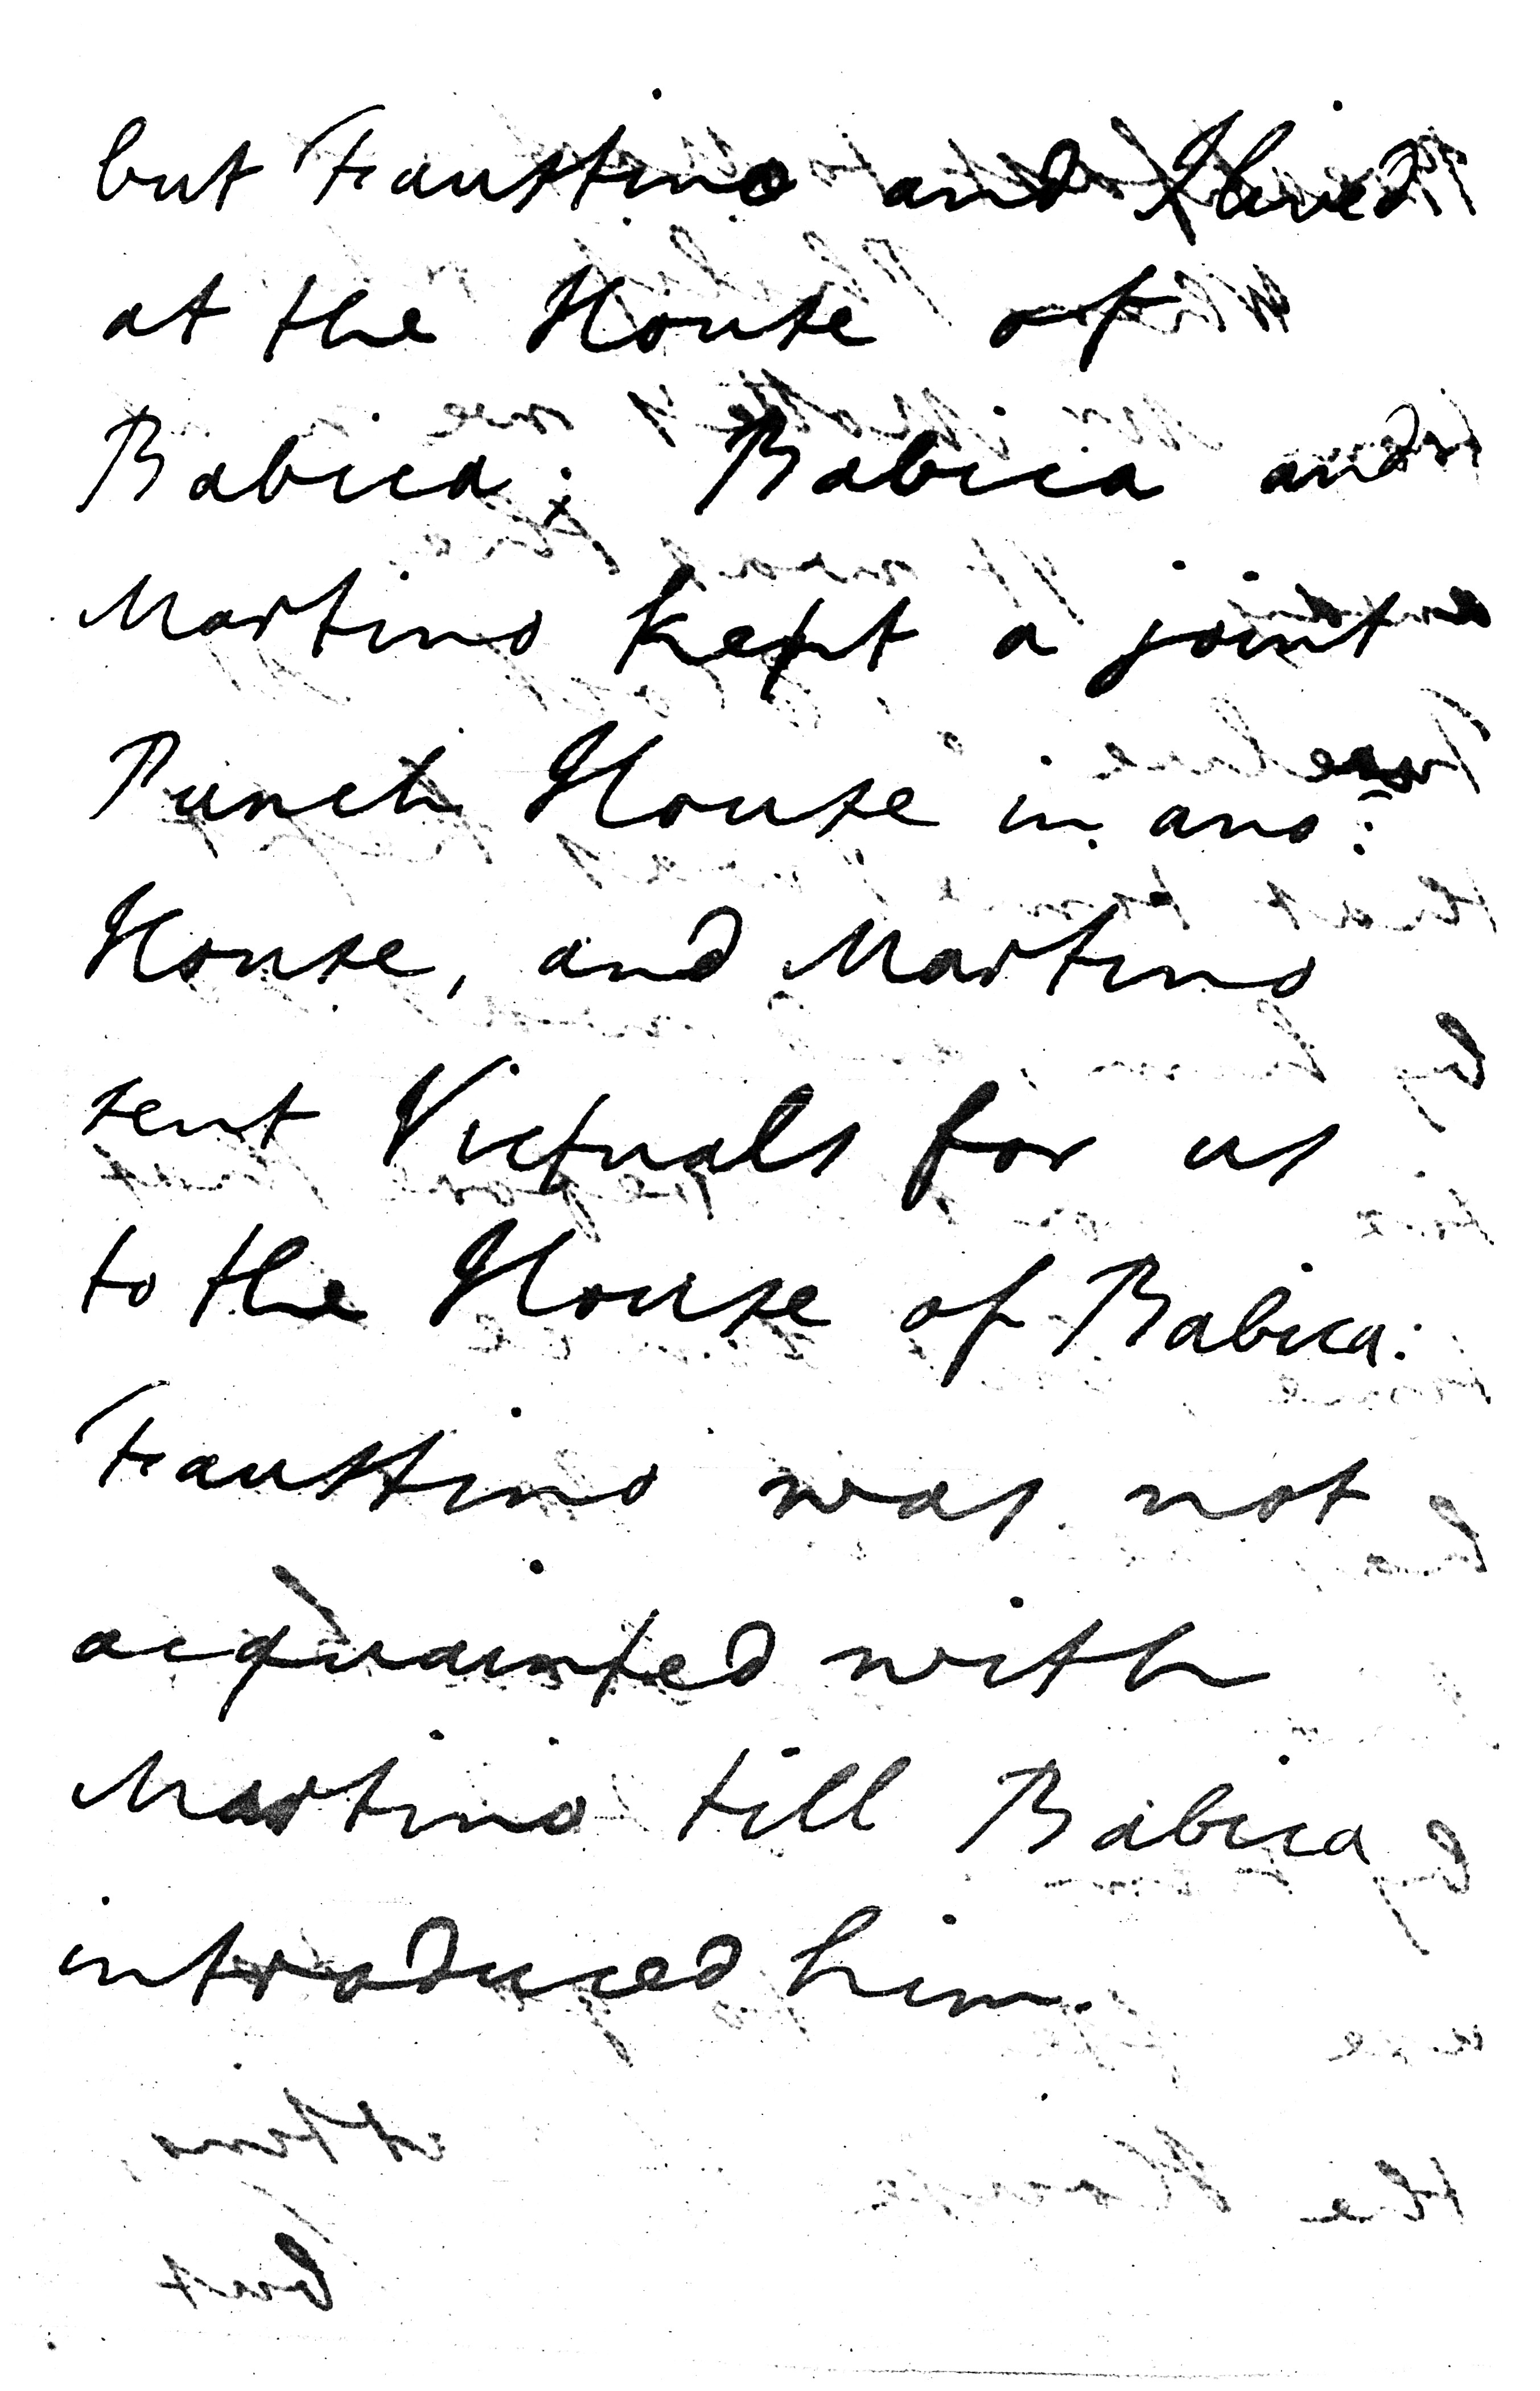 but Faustino and I lived
at the House of
Babica; Babica and
Martino kept a joint
Punch House in ano:
House, and Martino
sent Victuals for us
to the House of Babica:
Faustino was not
acquainted with
Martino till Babica
introduced him.